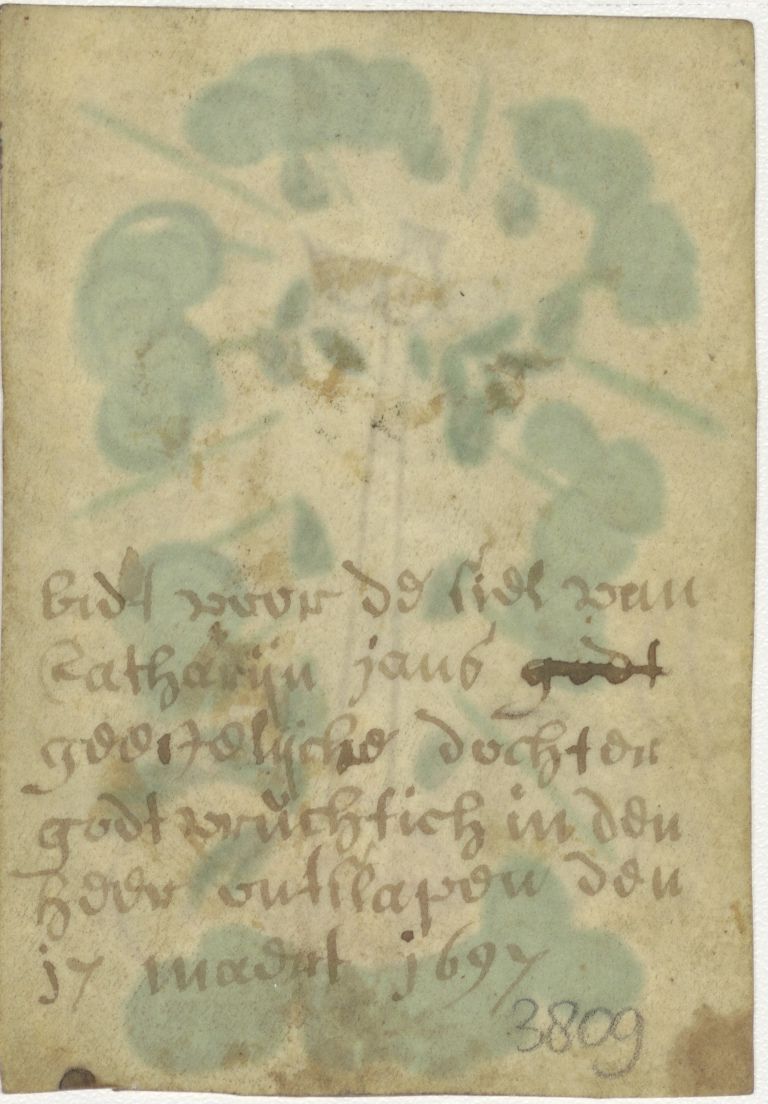 bidt voor de siel van
Catharijn jans godt
geestelijcke dochter
godtvruchtich in den
heer ontslapen den
17 maert 1697
3809